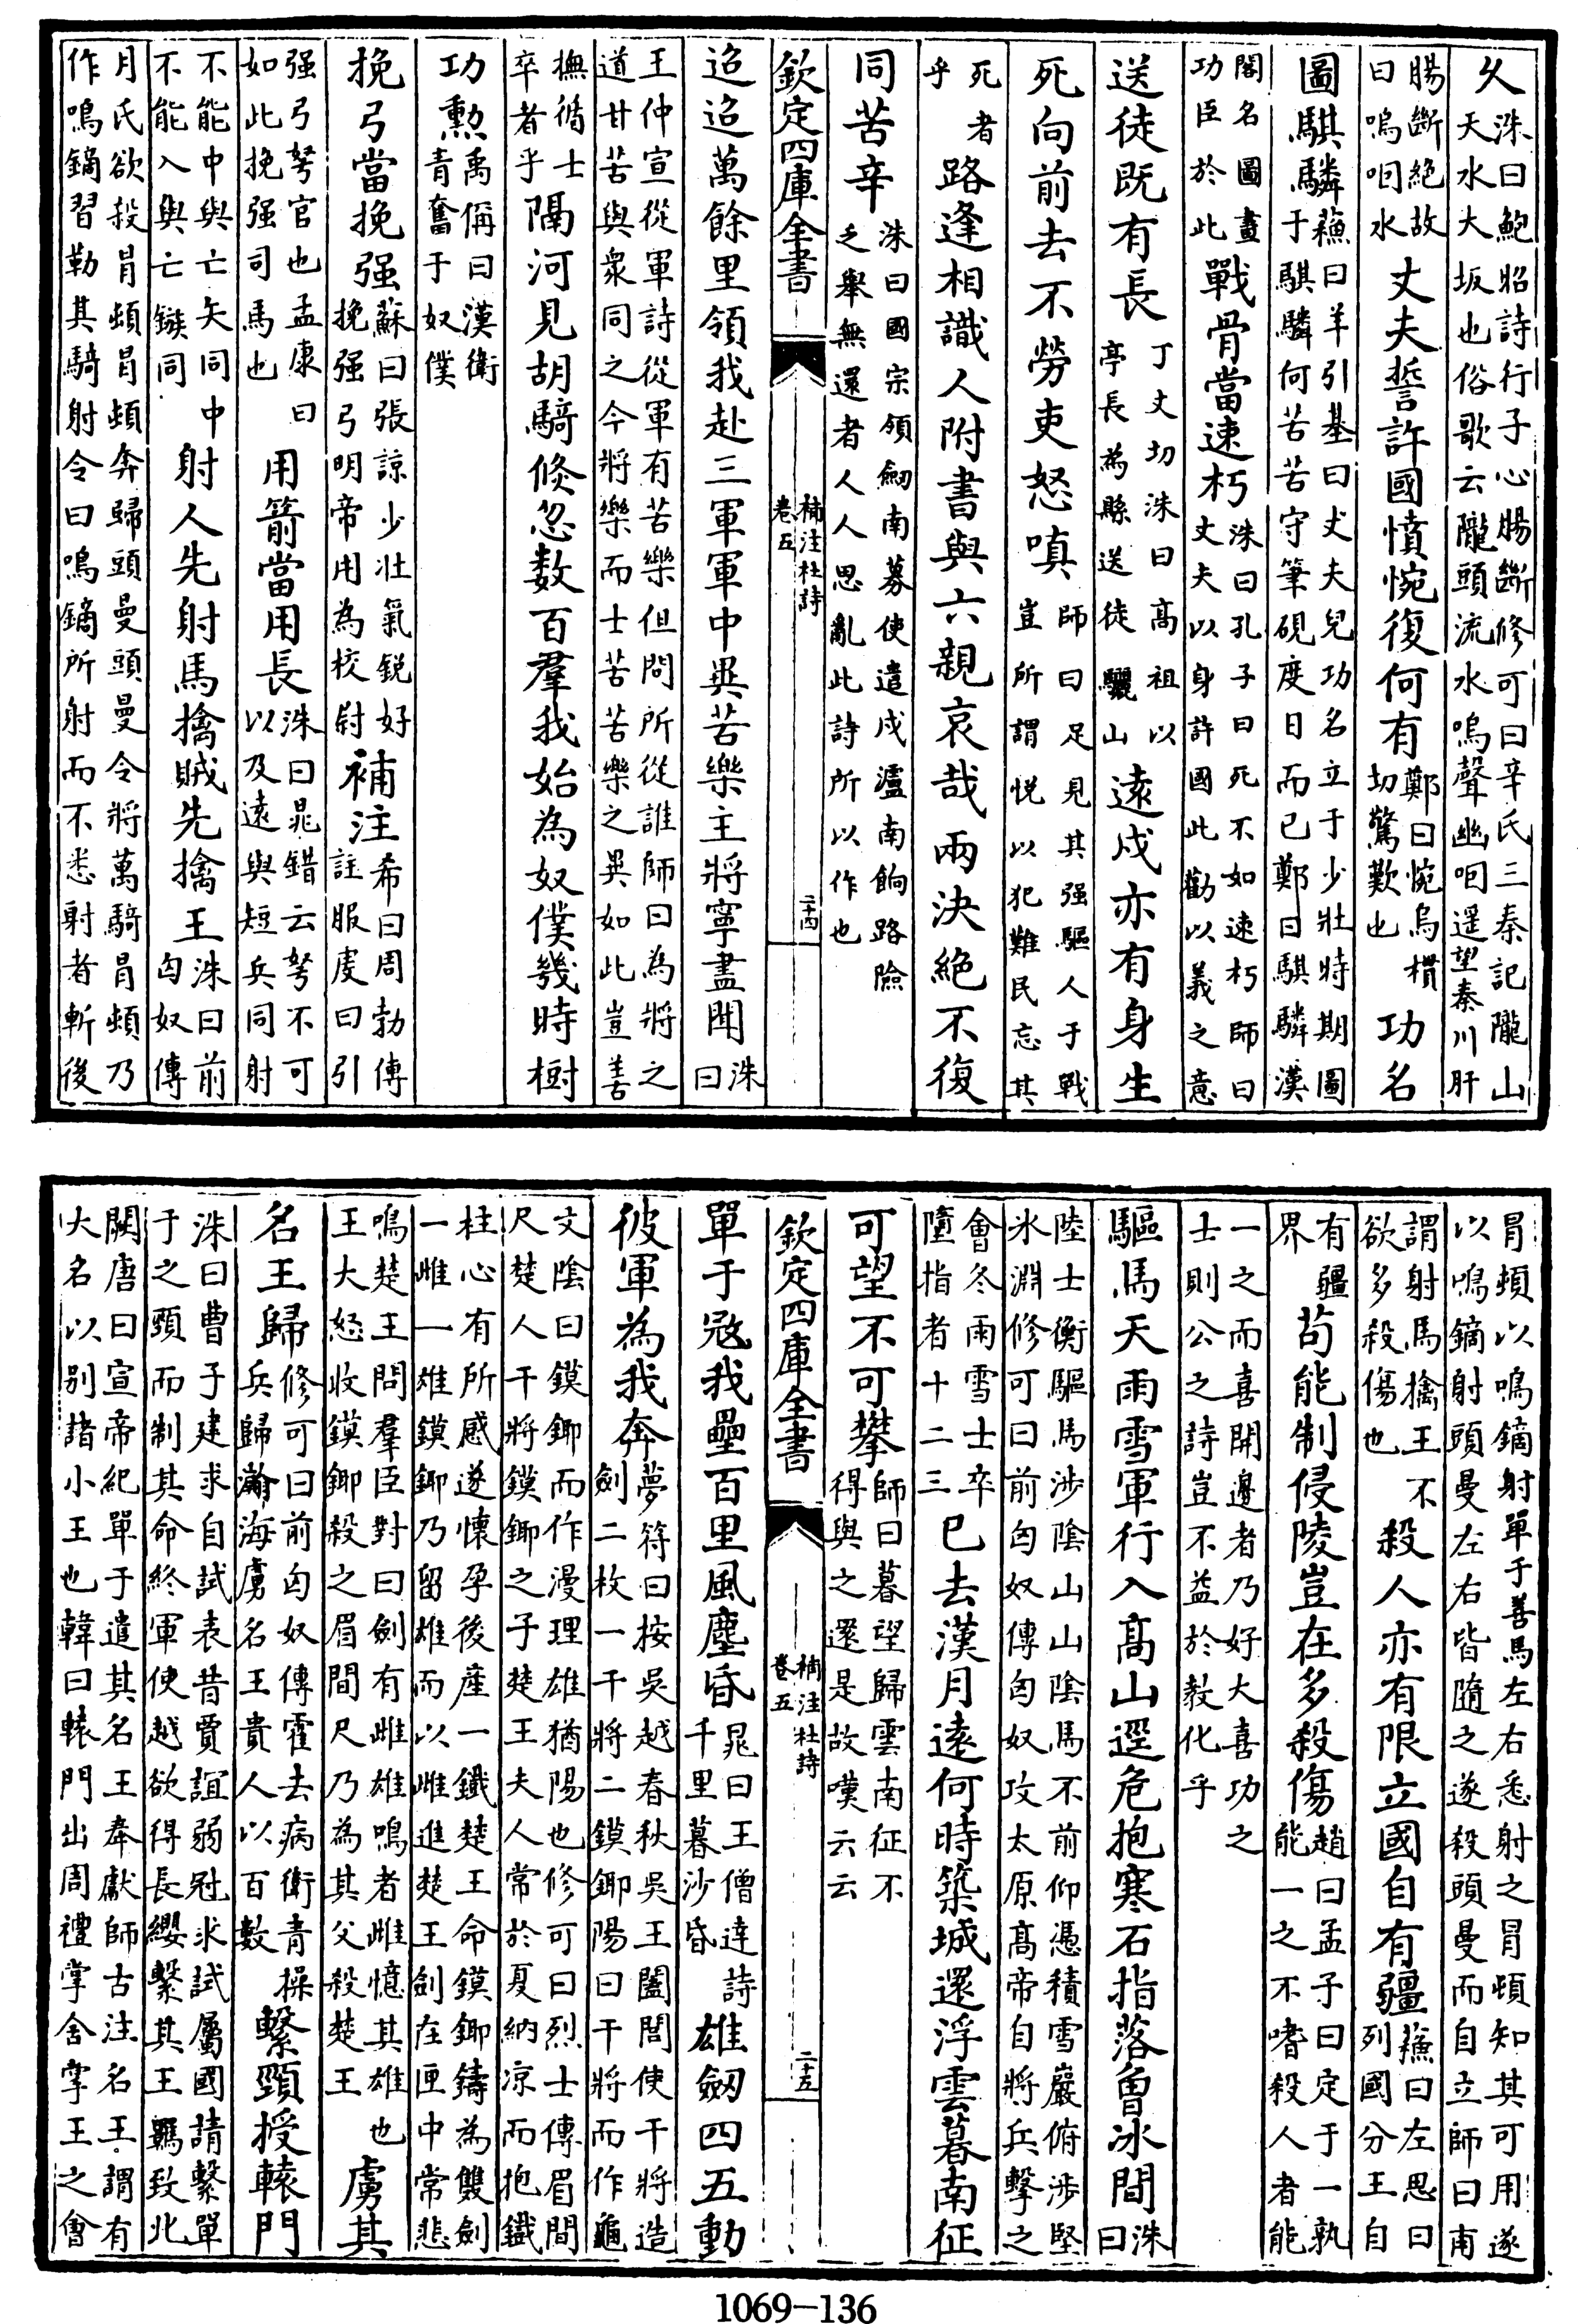 久洙曰鮑昭詩行子心腸斷修可曰辛氏三秦記隴山天水大坂也俗歌云隴頭流水嗚聲幽咽遥望秦川肝
腸斷絶故曰嗚咽水丈夫誓許國憤惋復何有鄭曰惋烏慣切驚歎也功名
圖騏驎蘓曰羊引基曰丈夫兒功名立于少壯時期圖于騏驎何苦苦守筆硯度日而已鄭曰騏驎漢
閣名圖畫功臣於此戰骨當速朽洙曰孔子曰死不如速朽師曰丈夫以身許國此勸以義之意
送徒既有長丁丈切洙曰髙祖以亭長為縣送徒驪山遠戍亦有身生
死向前去不勞吏怒嗔師曰足見其强驅人于戰豈所謂悦以犯難民忘其
死者乎路逢相識人附書與六親哀哉兩決絶不復
同苦辛洙曰國宗領劔南募使遣戍瀘南餉路險乏舉無還者人人思亂此詩所以作也
欽定四庫全書 補注杜詩 卷五 二十四
迢迢萬餘里領我赴三軍軍中異苦樂主將寧盡聞洙曰
王仲宣從軍詩從軍有苦樂但問所從誰師曰為將之道甘苦與衆同之今將樂而士苦苦樂之異如此豈善
撫循士卒者乎隔河見胡騎倐忽數百羣我始為奴僕幾時樹
功勲禹偁曰漢衛青奮于奴僕
挽弓當挽强蘇曰張諒少壯氣鋭好挽强弓明帝用為校尉補注希曰周勃傳註服虔曰引
强弓弩官也孟康曰如此挽强司馬也用箭當用長洙曰晁錯云弩不可以及遠與短兵同射
不能中與亡矢同中不能入與亡鏃同射人先射馬擒賊先擒王洙曰前匈奴傳
月氏欲殺冐頓冐頓奔歸頭曼頭曼令將萬騎冐頓乃作鳴鏑習勒其騎射令曰鳴鏑所射而不悉射者斬後
冐頓以鳴鏑射單于善馬左右悉射之冐頓知其可用遂以鳴鏑射頭曼左右皆隨之遂殺頭曼而自立師曰甫
謂射馬擒王不欲多殺傷也殺人亦有限立國自有疆蘓曰左思曰列國分王自
有疆界苟能制侵陵豈在多殺傷趙曰孟子曰定于一孰能一之不嗜殺人者能
一之而喜開邊者乃好大喜功之士則公之詩豈不益於教化乎
驅馬天雨雪軍行入髙山逕危抱寒石指落曽冰間洙曰
陸士衡驅馬涉隂山山隂馬不前仰憑積雪巖俯涉堅氷淵修可曰前匈奴傳匈奴攻太原髙帝自將兵擊之
會冬雨雪士卒墮指者十二三已去漢月遠何時築城還浮雲暮南征
可望不可攀師曰暮望歸雲南征不得與之還是故嘆云云
欽定四庫全書 補注杜詩 卷五 二十五
單于冦我壘百里風塵昏晁曰王僧達詩千里暮沙昏雄劔四五動
彼軍為我奔夢符曰按吳越春秋吳王闔閭使干將造劍二枚一干將二鏌鎁陽曰干將而作龜
文隂曰鏌鎁而作漫理雄猶陽也修可曰烈士傳眉間尺楚人干將鏌鎁之子楚王夫人常於夏納凉而抱鐵
柱心有所感遂懷孕後産一鐵楚王命鏌鎁鑄為雙劍一雌一雄鏌鎁乃留雄而以雌進楚王劍在匣中常悲
鳴楚王問羣臣對曰劍有雌雄鳴者雌憶其雄也王大怒收鏌鎁殺之眉間尺乃為其父殺楚王虜其
名王歸修可曰前匈奴傳霍去病衛青操兵歸瀚海虜名王貴人以百數繫頸授轅門
洙曰曹子建求自試表昔賈誼弱冠求試屬國請繫單于之頸而制其命終軍使越欲得長纓繫其王羈致北
闕唐曰宣帝紀單于遣其名王奉獻師古注名王謂有大名以别諸小王也韓曰轅門出周禮掌舍掌王之會
1069-136